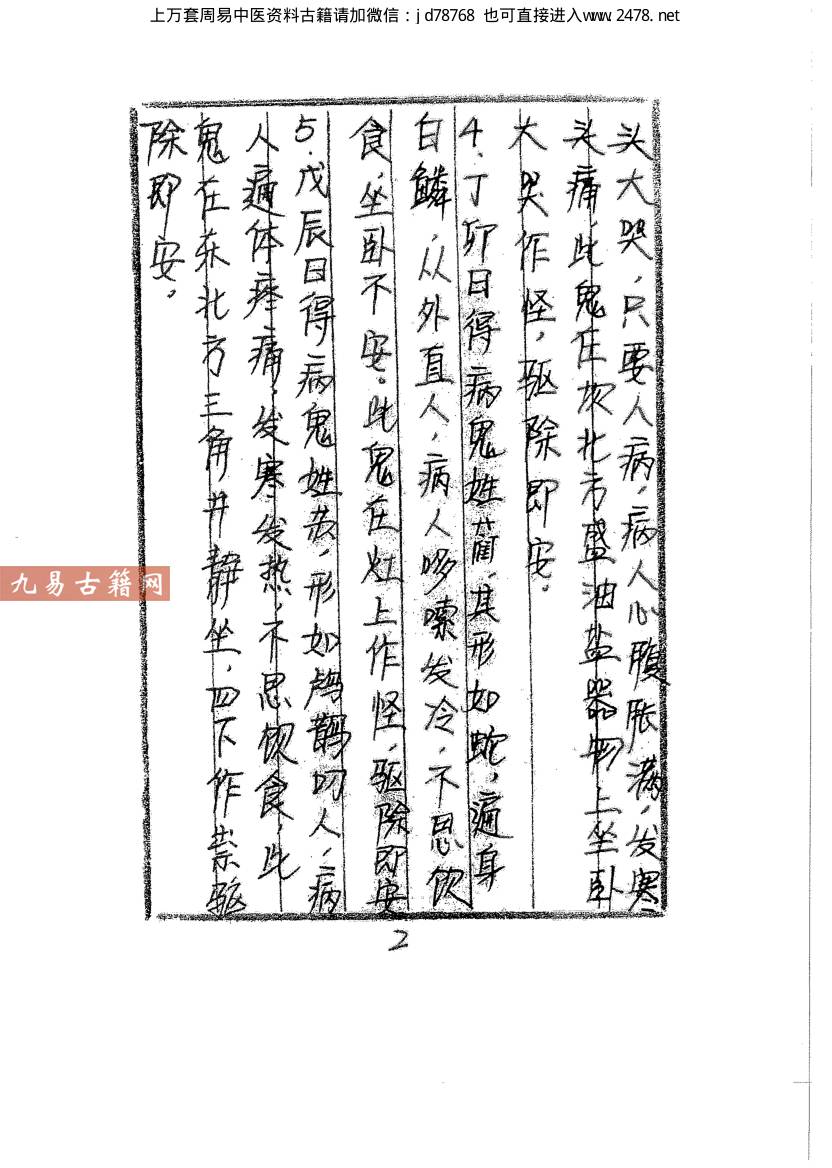 上万套周易中医资料古籍请加微信：jd78768 也可直接进入www.2478.net
头大哭，只要人病，病人心腹胀满，发寒
头痛，此鬼在坎北方盛油盐器物上坐卧
大哭作怪，驱除即安。
4．丁卯日得病鬼姓蔺，其形如蛇，遍身
白鳞，从外直人，病人哆嗦发冷，不思饮
食，坐卧不安。此鬼在灶上作怪，驱除即安
5．戊辰日得病鬼姓，形如叼人，病
人遍体疼痛，发寒发热，不思饮食，此
鬼在东北方三角井静坐，四下作祟驱
除即安。
九易古籍网
2